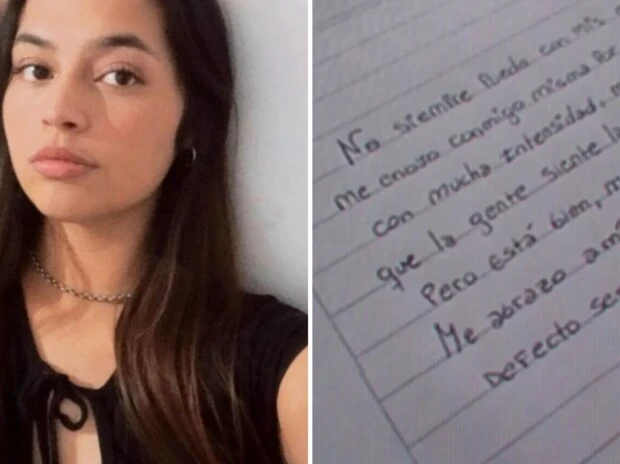 No siempre puedo con mis
me enojo conmigo misma por
con mucha intensidad,
que la gente siente la
Pero está bien,
Me abrazo a mi
Defecto